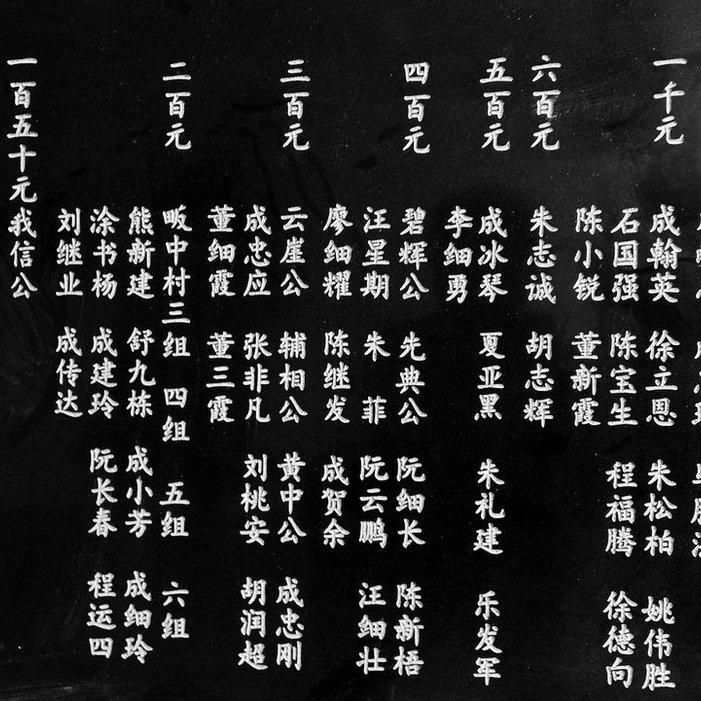 一千元 成翰英 徐立恩 朱松柏 姚伟胜
石国强 陈宝生 程福腾 徐德向
陈小锐 董新霞
六百元 朱志诚 胡志辉
五百元 成冰琴 夏亚黑 朱礼建 乐发军
李细勇
四百元 碧辉公 先典公 阮细长 陈新梧
汪星期 朱菲 阮云鹏 汪细壮
廖细耀 陈继发 成贺余
三百元 云崖公 辅相公 黄中公 成忠刚
成忠应 张非凡 刘桃安 胡润超
董细霞 董三霞
二百元 畈中村三组 四组 五组 六组
熊新建 舒九栋 成小芳 成细玲
涂书杨 成建玲 阮长春 程运四
刘继业 成传达
一百五十元 我信公